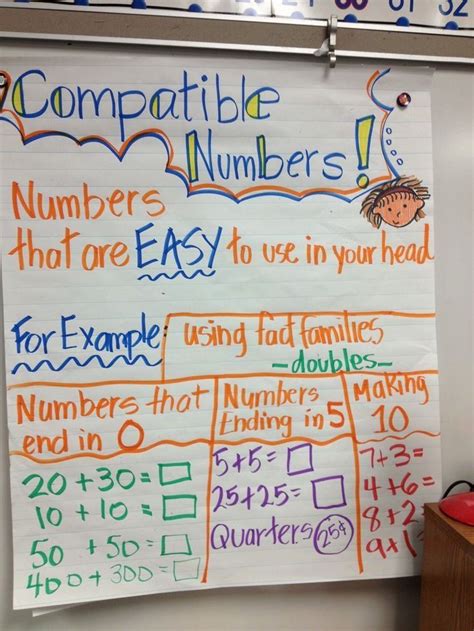 Compatible
Numbers!
Numbers
that are EASY to use in your head
For Example: using fact families
-doubles-
Numbers that
end in 0
20+30=□
10+10=□
50+50=□
400+300=□
Numbers
Ending in 5
5+5=□
25+25=□
Quarters 25¢
Making
10
7+3=
4+6=
8+2
9+1